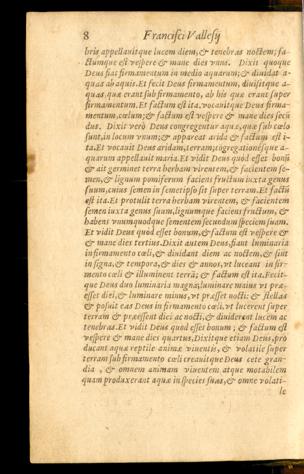 8 Francisci Vallesij
bris appellauitque lucem diem, & tenebras noctem; fa-
ctumque est vespere & mane dies vnus. Dixit quoque
Deus fiat firmamentum in medio aquarum; & diuidat a-
quas ab aquis. Et fecit Deus firmamentum, diuisitque a-
quas, quæ erant sub firmamento, ab his quæ erant super
firmamentum. Et factum est ita, vocauitque Deus firma-
mentum, cœlum; & factum est vespere & mane dies secũ
dus. Dixit verò Deus congregentur aquæ, quæ sub cœlo
sunt, in locum vnum; & appareat arida & factum est i-
ta. Et vocauit Deus aridam, terram; cõgregationésque a-
quarum appellauit maria. Et vidit Deus quòd esset bonũ
& ait germinet terra herbam virentem, & facientem se-
men, & lignum pomiferum faciens fructum iuxta genus
suum, cuius semen in semetipso sit super terram. Et factũ
est ita. Et protulit terra herbam virentem, & facientem
semen iuxta genus suum, lignumque faciens fructum, &
habens vnumquodque sementem secundum speciem suam.
Et vidit Deus quòd esset bonum, & factum est vespere &
& mane dies tertius. Dixit autem Deus, fiant luminaria
in firmamento cœli, & diuidant diem ac noctem, & sint
in signa, & tempora, & dies & annos, vt luceant in fir-
mento cœli & illuminent terrã; & factum est ita. Fecit-
que Deus duo luminaria magna, luminare maius vt præ-
esset diei, & luminare minus, vt præesset nocti: & stellas
& posuit eas Deus in firmamento cœli, vt lucerent super
terram & præessent diei ac nocti, & diuiderent lucem ac
tenebras. Et vidit Deus quòd esset bonum; & factum est
vespere & mane dies quartus. Dixitque etiam Deus, pro
ducant aquæ reptile animæ viuentis, & volatile super
terram sub firmamento cœli creauitque Deus cete gran-
dia, & omnem animam viuentem atque motabilem
quam produxerant aquæ in species suas, & omne volati-
le